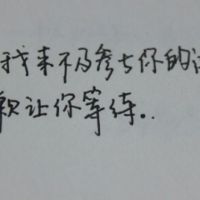 我来不及参与你的
让你等待..